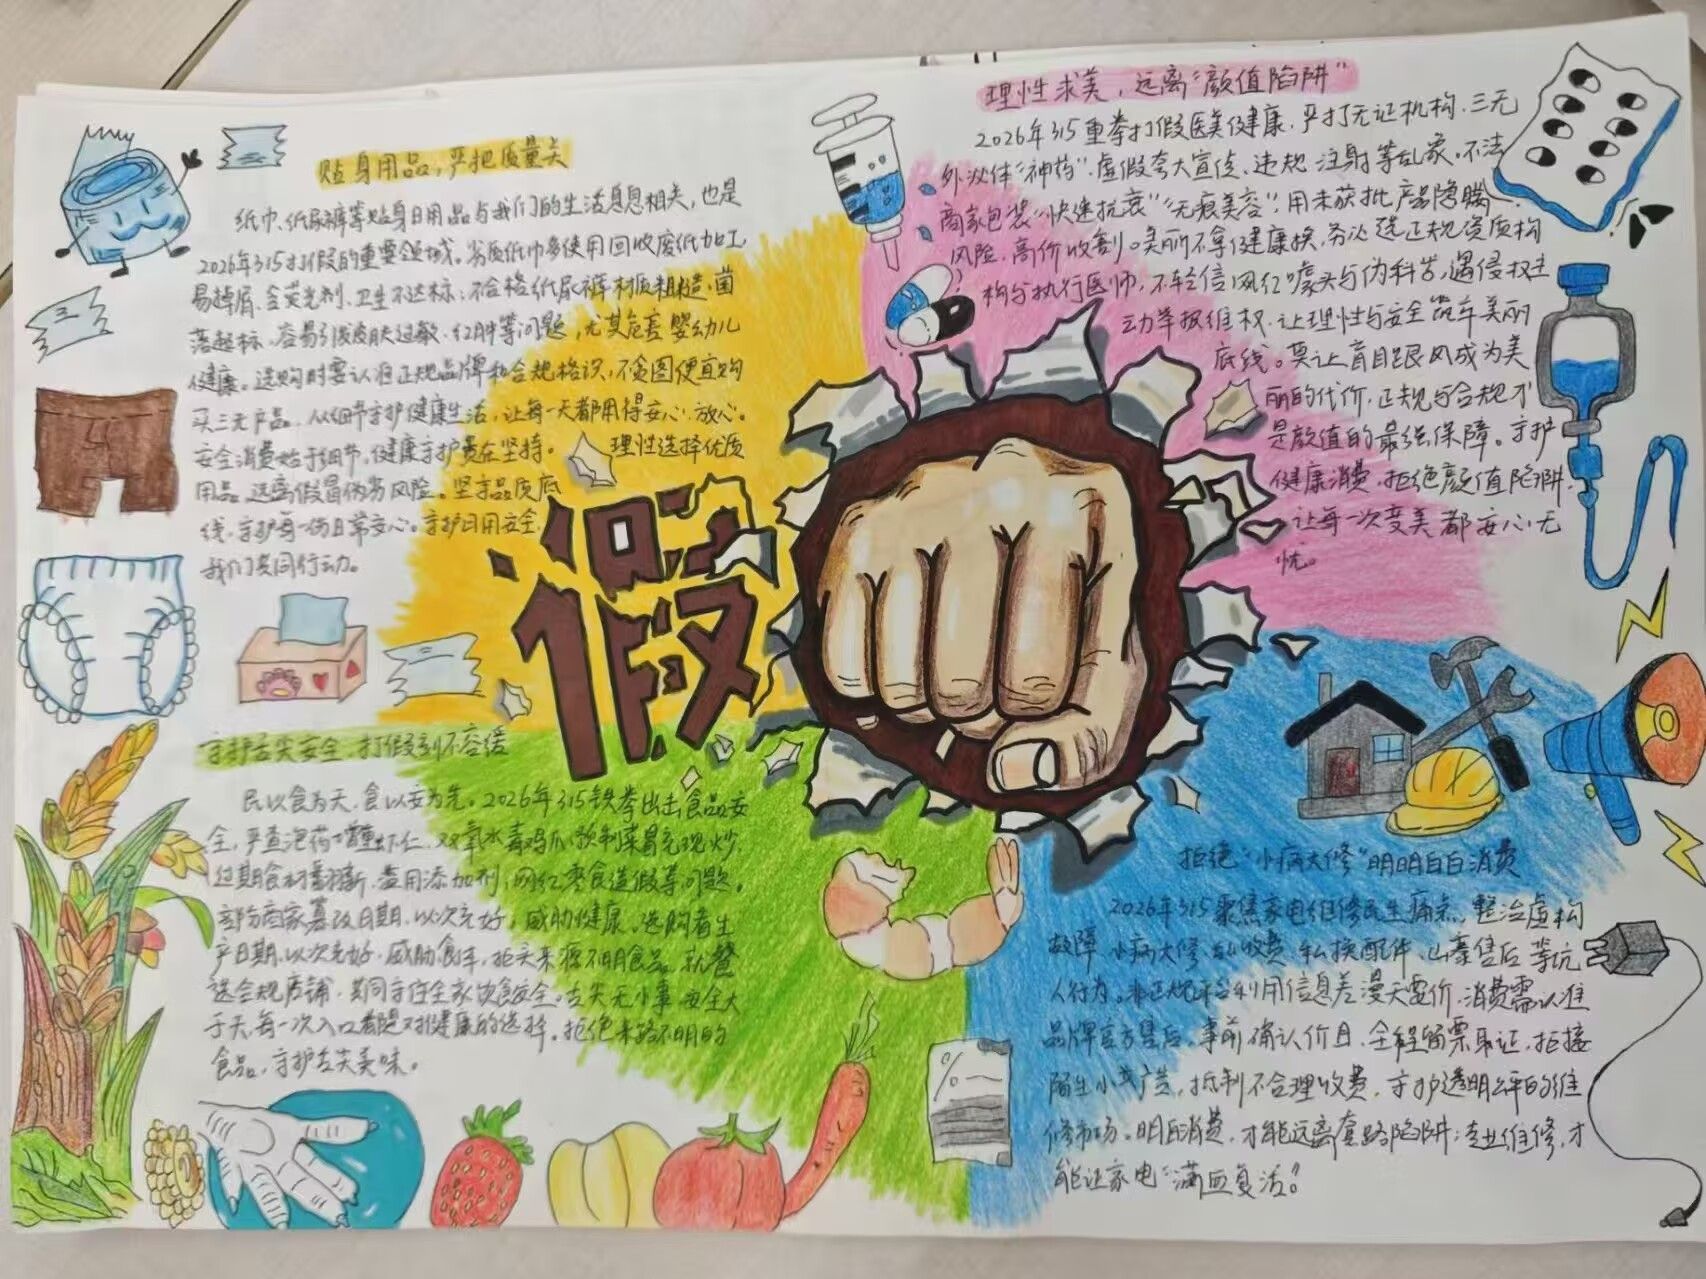 贴身用品，严把质量关
纸巾、纸尿裤等贴身日用品与我们的生活息息相关，也是
2026年315打假的重要领域。劣质纸巾多使用回收废纸加工
易掉屑，含荧光剂、卫生不达标；不合格纸尿裤材质粗糙，菌
落超标，容易引发皮肤过敏、红肿等问题，尤其危害婴幼儿
健康。选购时要认准正规品牌和合规标识，不贪图便宜购
买三无产品，从细节守护健康生活，让每一天都用得安心、放心。
安全消费始于细节，健康守护贵在坚持。 理性选择优质
用品，远离假冒伪劣风险。坚守品质底
线，守护每一份日常安心。守护日用安全，
我们共同行动。
理性求美，远离“颜值陷阱”
2026年315重拳打假医美健康，严打无证机构、三无
外泌体“神药”、虚假夸大宣传、违规注射等乱象，不法
商家包装“快速抗衰”“无痕美容”，用未获批产品隐瞒
风险，高价收割。美丽不拿健康换，务必选正规资质机
构与执行医师，不轻信网红噱头与伪科普，遇侵权主
动举报维权，让理性与安全筑牢美丽
底线。莫让盲目跟风成为美
丽的代价，正规与合规才
是颜值的最强保障。守护
健康消费，拒绝颜值陷阱，
让每一次变美都安心无
忧。
假
守护舌尖安全，打假刻不容缓
民以食为天，食以安为先。2026年315铁拳出击食品安
全，严查泡药增重虾仁、双氧水毒鸡爪、预制菜冒充现炒、
过期食材翻新、滥用添加剂、网红零食造假等问题。
部分商家篡改日期，以次充好，威胁健康。选购看生
产日期，以次充好，威胁食，拒买来源不明食品，就餐
选合规店铺，共同守住全家饮食安全。舌尖无小事，安全大
于天，每一次入口都是对健康的选择。拒绝来路不明的
食品，守护舌尖美味。
拒绝“小病大修”明明白白消费
2026年315聚焦家电维修民生痛点，整治虚构
故障、小病大修、乱收费、私换配件、山寨售后等坑
人行为。非正规平台利用信息差漫天要价，消费需认准
品牌官方售后，事前确认价目，全程留票取证，拒接
陌生小广告，抵制不合理收费，守护透明公平的维
修市场。明白消费，才能远离套路陷阱；专业维修，才
能让家电“满血复活”。